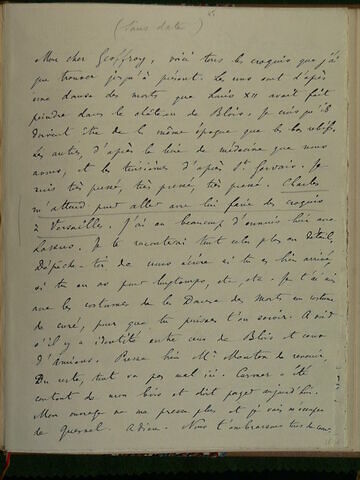 (Sans date)
Mon cher Geoffroy, voici tous les croquis que j'ai
pu trouver jusqu'à présent. Les uns sont d'après
une danse des morts que Louis XII avait fait
peindre dans le château de Blois. Je crois qu'ils
doivent être de la même époque que les bas reliefs.
Les autres, d'après le livre de médecine que nous
avons, et les troisièmes d'après St. Gervais. Je
suis très pressé, très pressé, très pressé. Charles
m'attend pour aller avec lui faire des croquis
à Versailles. J'ai eu beaucoup d'ennuis hier avec
Je te raconterai tout cela plus en détail.
Dépêche-toi de nous écrire si tu es bien arrivé,
si tu en as pour longtemps, etc, etc. Je t'ai
les costumes de la Danse des Morts en costume
de curé, pour que tu puisses t'en servir. A
s'il y a identité entre ceux de Blois et ceux
d'Amiens. Presse bien Mr Mouton de revenir.
Du reste, tout va pas mal ici. Curmer a été
content de mon bois et doit payer aujourd'hui.
Mon ouvrage ne me presse plus et je vais m'occuper
de Quesnel. Adieu. Nous t'embrassons tous de coeur.